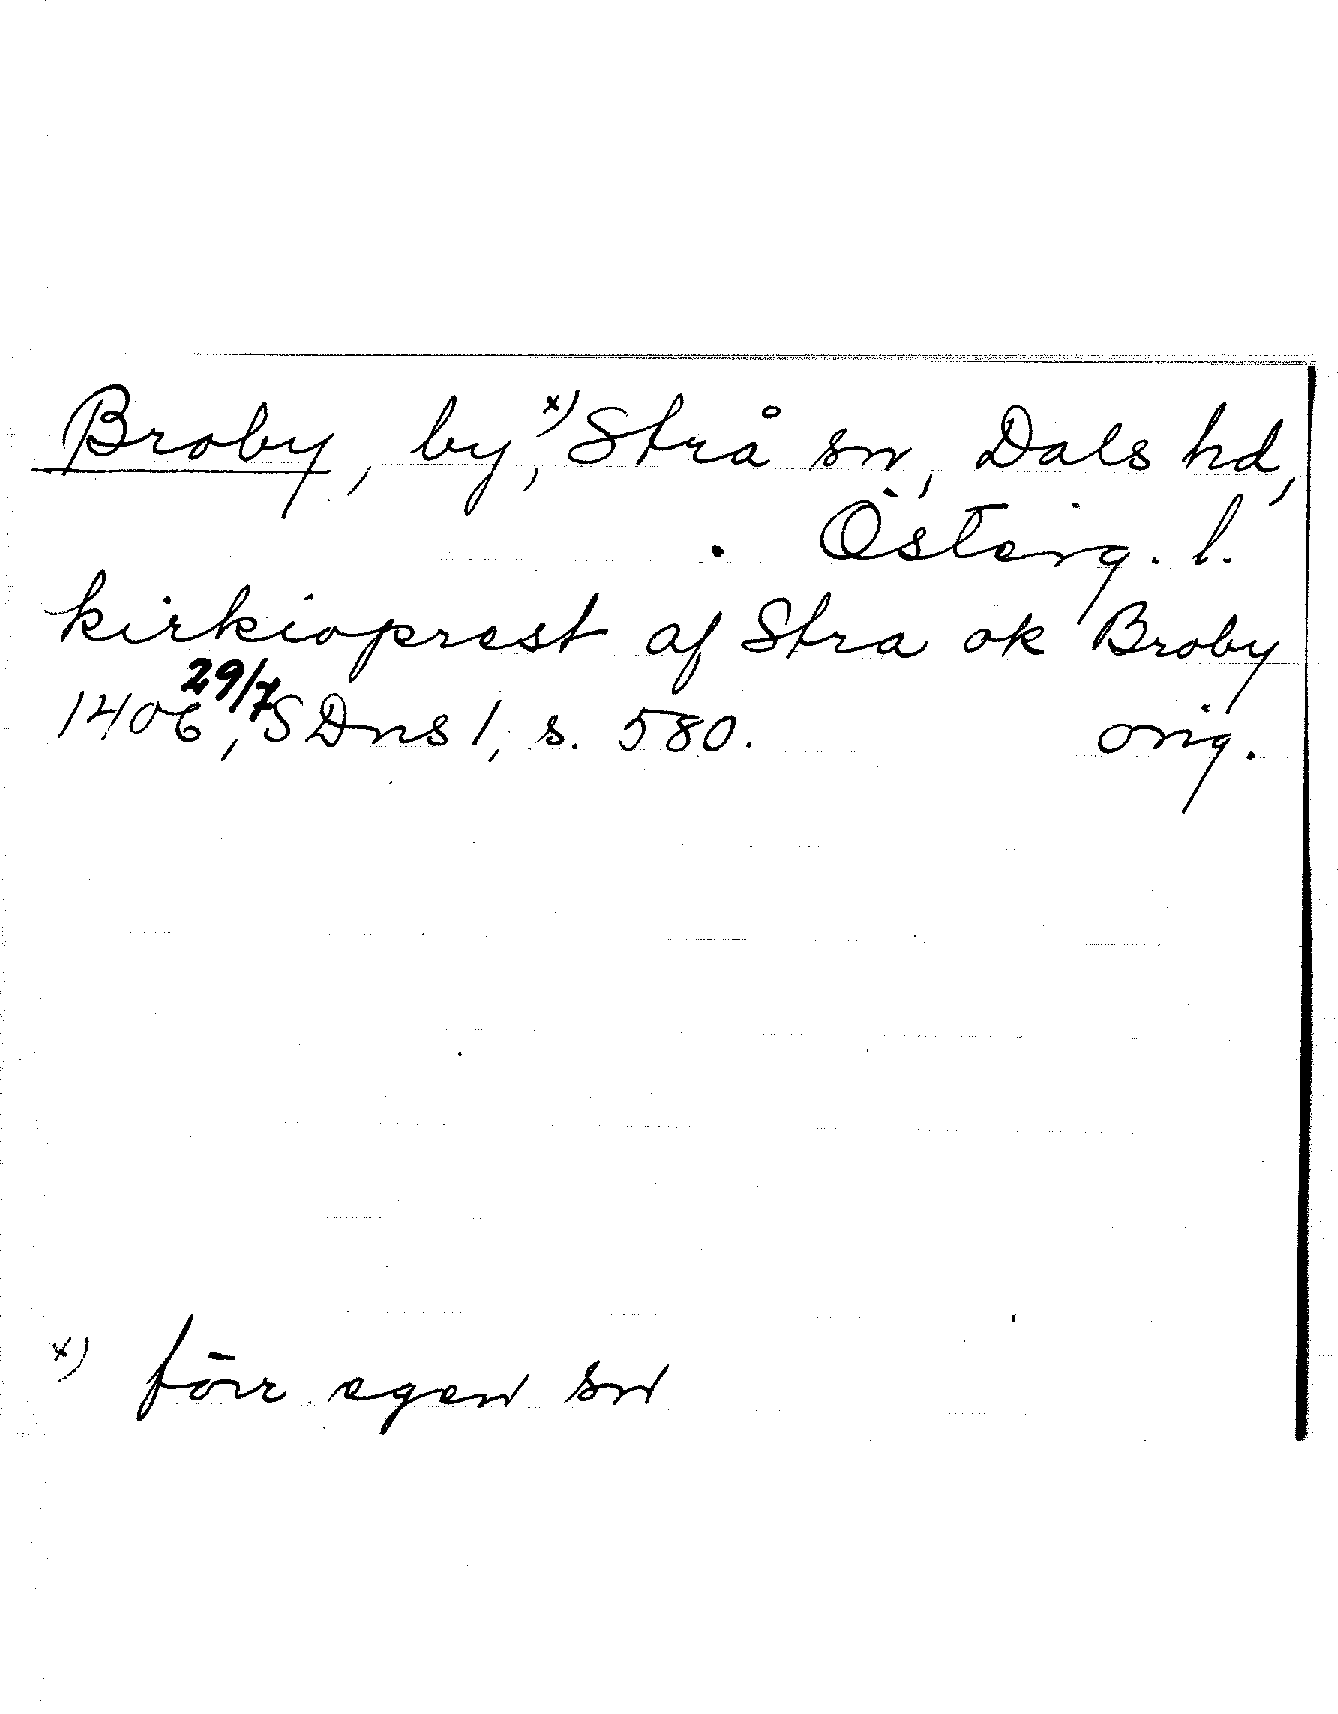 Broby, by,x) Strå sn, Dals hd,
Österg. l.
kirkioprest af Stra ok Broby
1406 29/7, SDns 1, s. 580. orig.
x) förr egen sn